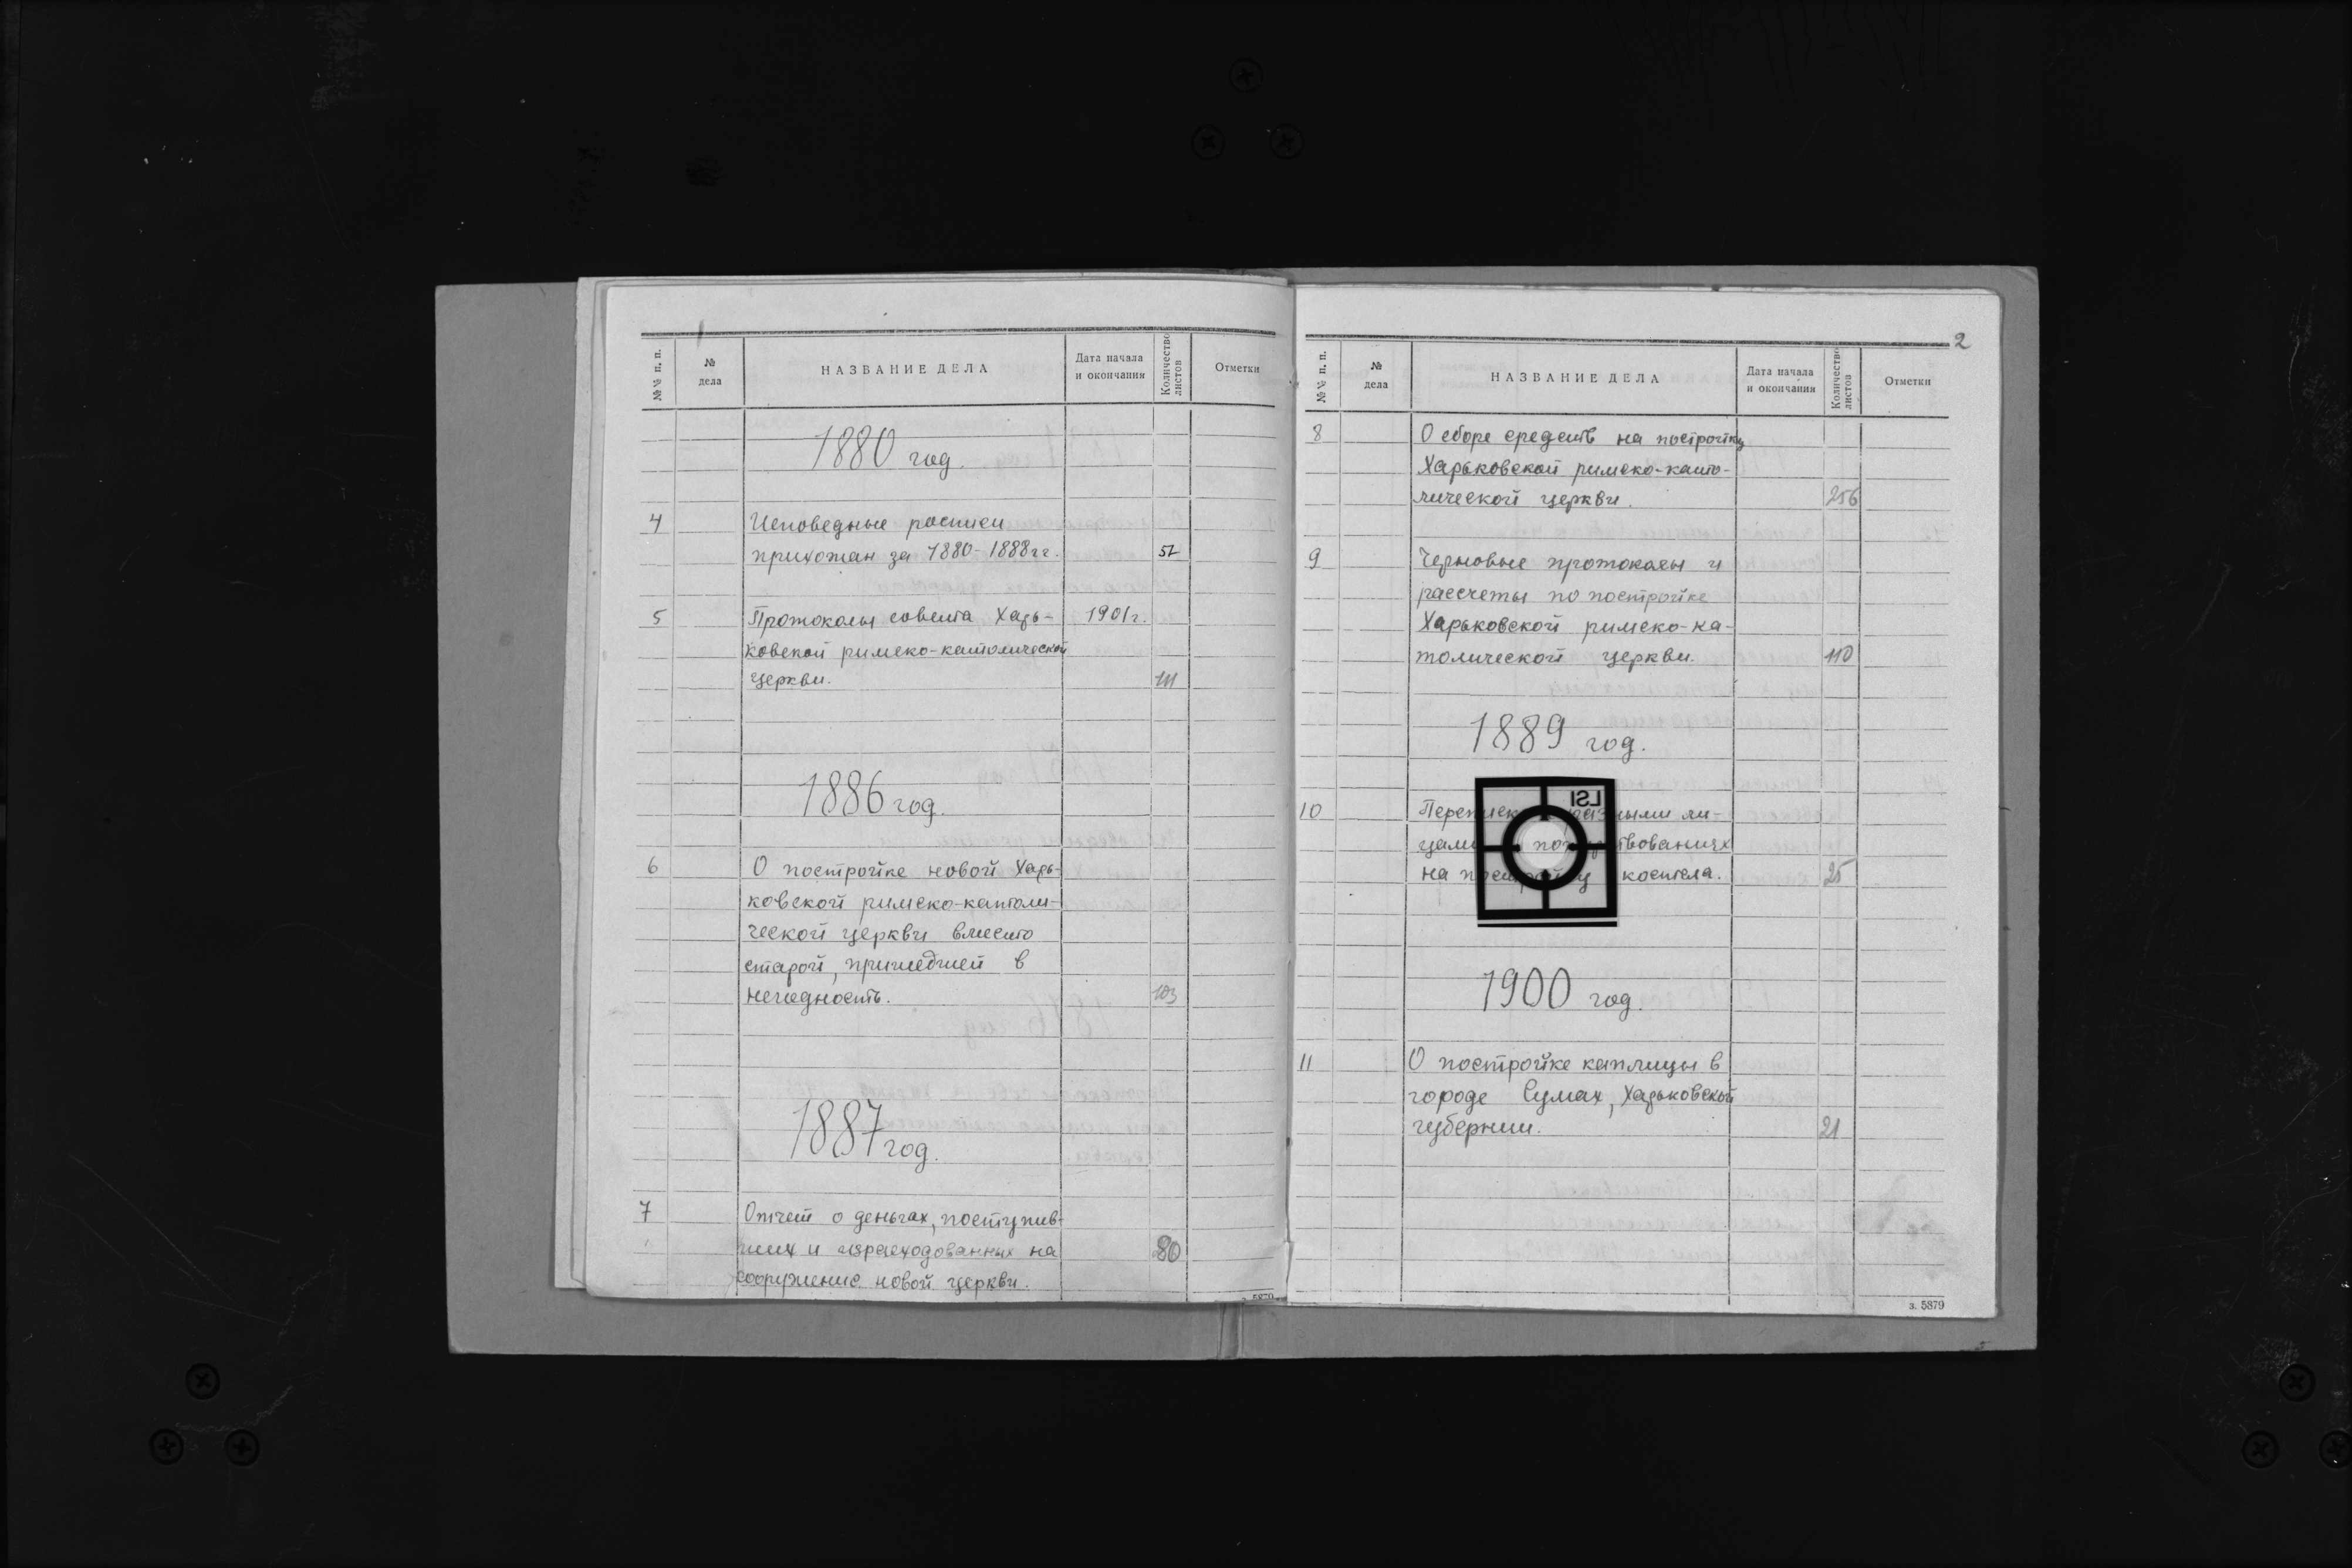 №№ п. п.
№ дела
НАЗВАНИЕ ДЕЛА
Дата начала и окончания
Количество листов
Отметки
1880 год.
4
Исповедные росписи
прихожан за 1880-1888 гг.
52
5
Протоколы совета Харь-
1901 г.
ковской римско-католической
церкви.
111
1886 год.
6
О постройке новой Харь-
ковской римско-католи-
ческой церкви вместо
старой, пришедшей в
негодность.
103
1887 год.
7
Отчет о деньгах, поступив-
ших и израсходованных на
80
сооружение новой церкви.
2
№№ п. п.
№ дела
НАЗВАНИЕ ДЕЛА
Дата начала и окончания
Количество листов
Отметки
8
О сборе средств на постройку
Харьковской римско-като-
лической церкви.
256
9
Черновые протоколы и
рассчеты по постройке
Харьковской римско-ка-
толической церкви.
110
1889 год.
LSI
10
Переписка разными ли-
цами пожертвованиях
на постройку костела.
25
1900 год.
11
О постройке каплицы в
городе Сумах, Харьковской
губернии.
21
з. 5879